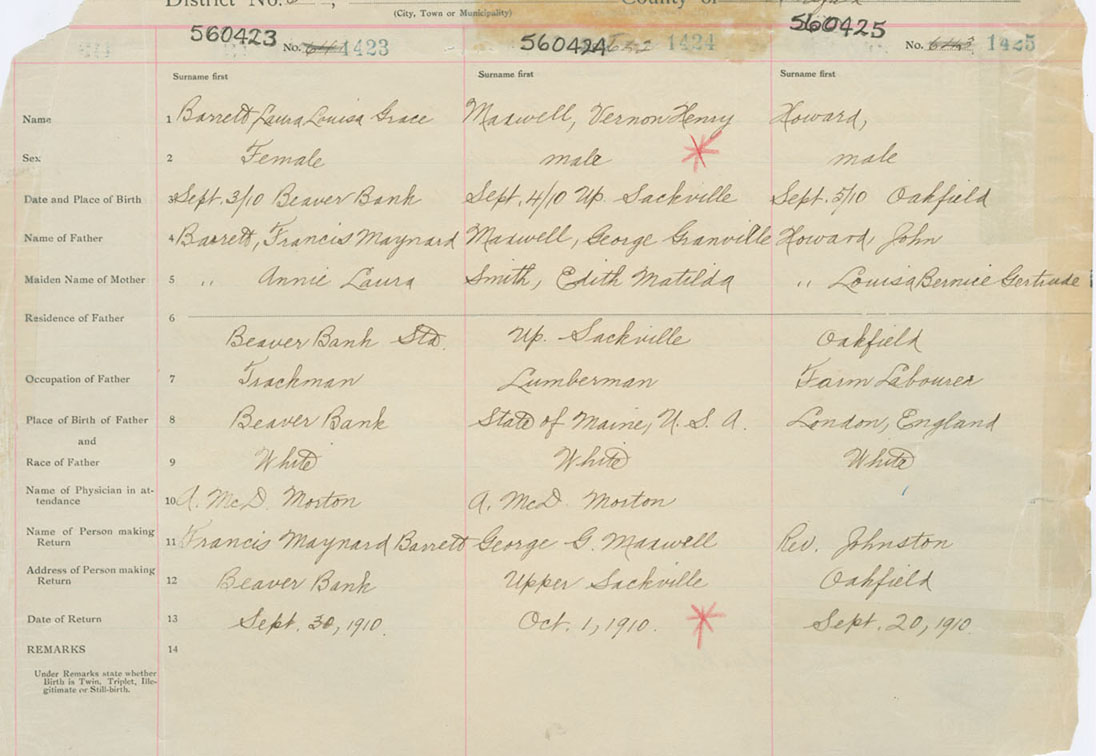 District No. County of
(City, Town or Municipality)
560423 No. 1423 560424 1424 560425 No. 1425
Surname first Surname first Surname first
Name 1 Barrett Laura Louisa Grace Maxwell, Vernon Henry Howard,
Sex 2 Female male male
Date and Place of Birth 3 Sept. 3/10 Beaver Bank Sept. 4/10 Up. Sackville Sept. 5/10 Oakfield
Name of Father 4 Barrett, Francis Maynard Maxwell, George Granville Howard, John
Maiden Name of Mother 5 " Annie Laura Smith, Edith Matilda " Louisa Bernice Gertrude
Residence of Father 6
Beaver Bank Std. Up. Sackville Oakfield
Occupation of Father 7 Trackman Lumberman Farm Labourer
Place of Birth of Father 8 Beaver Bank State of Maine, U.S.A. London, England
and
Race of Father 9 White White White
Name of Physician in at-
tendance 10 A. McD. Morton A. McD. Morton
Name of Person making
Return 11 Francis Maynard Barrett George G. Maxwell Rev. Johnston
Address of Person making
Return 12 Beaver Bank Upper Sackville Oakfield
Date of Return 13 Sept. 30, 1910. Oct. 1, 1910. Sept. 20, 1910.
REMARKS 14
Under Remarks state whether
Birth is Twin, Triplet, Ille-
gitimate or Still-birth.